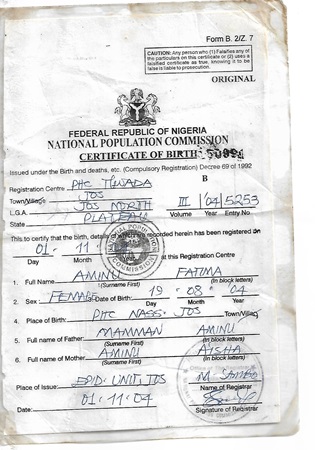 Form B. 2/Z. 7
CAUTION: Any person who (1) Falsifies any of
the particulars on this certificate or (2) uses a
falsified certificate as true, knowing it to be
false is liable to prosecution.
ORIGINAL
FEDERAL REPUBLIC OF NIGERIA
NATIONAL POPULATION COMMISSION
CERTIFICATE OF BIRTH
Issued under the Birth and deaths, etc. (Compulsory Registration) Decree 69 of 1992
Registration Centre PHC B
Town/Village JOS
L.G.A. JOS NORTH III '04 5253
State PLATEAU Volume Year Entry No.
This to certify that the birth, details of which recorded herein has been registered on
01 11 at this Registration Centre
Day Month
1. Full Name AMINU FATIMA
(Surname First) (In block letters)
2. Sex: FEMALE Date of Birth: 19 08 04
Day Month Year
4. Place of Birth: PHC NASS. JOS Town/Village
5. Full name of Father: MAMMAN AMINU
(Surname First) (In block letters)
6. Full name of Mother: AMINU AISHA
(Surname First) (In block letters)
Place of Issue: EPID. UNIT, JOS M. SAMBO
Name of Registrar
Date: 01.11.04
Signature of Registrar
NATIONAL POPULATION COMMISSION